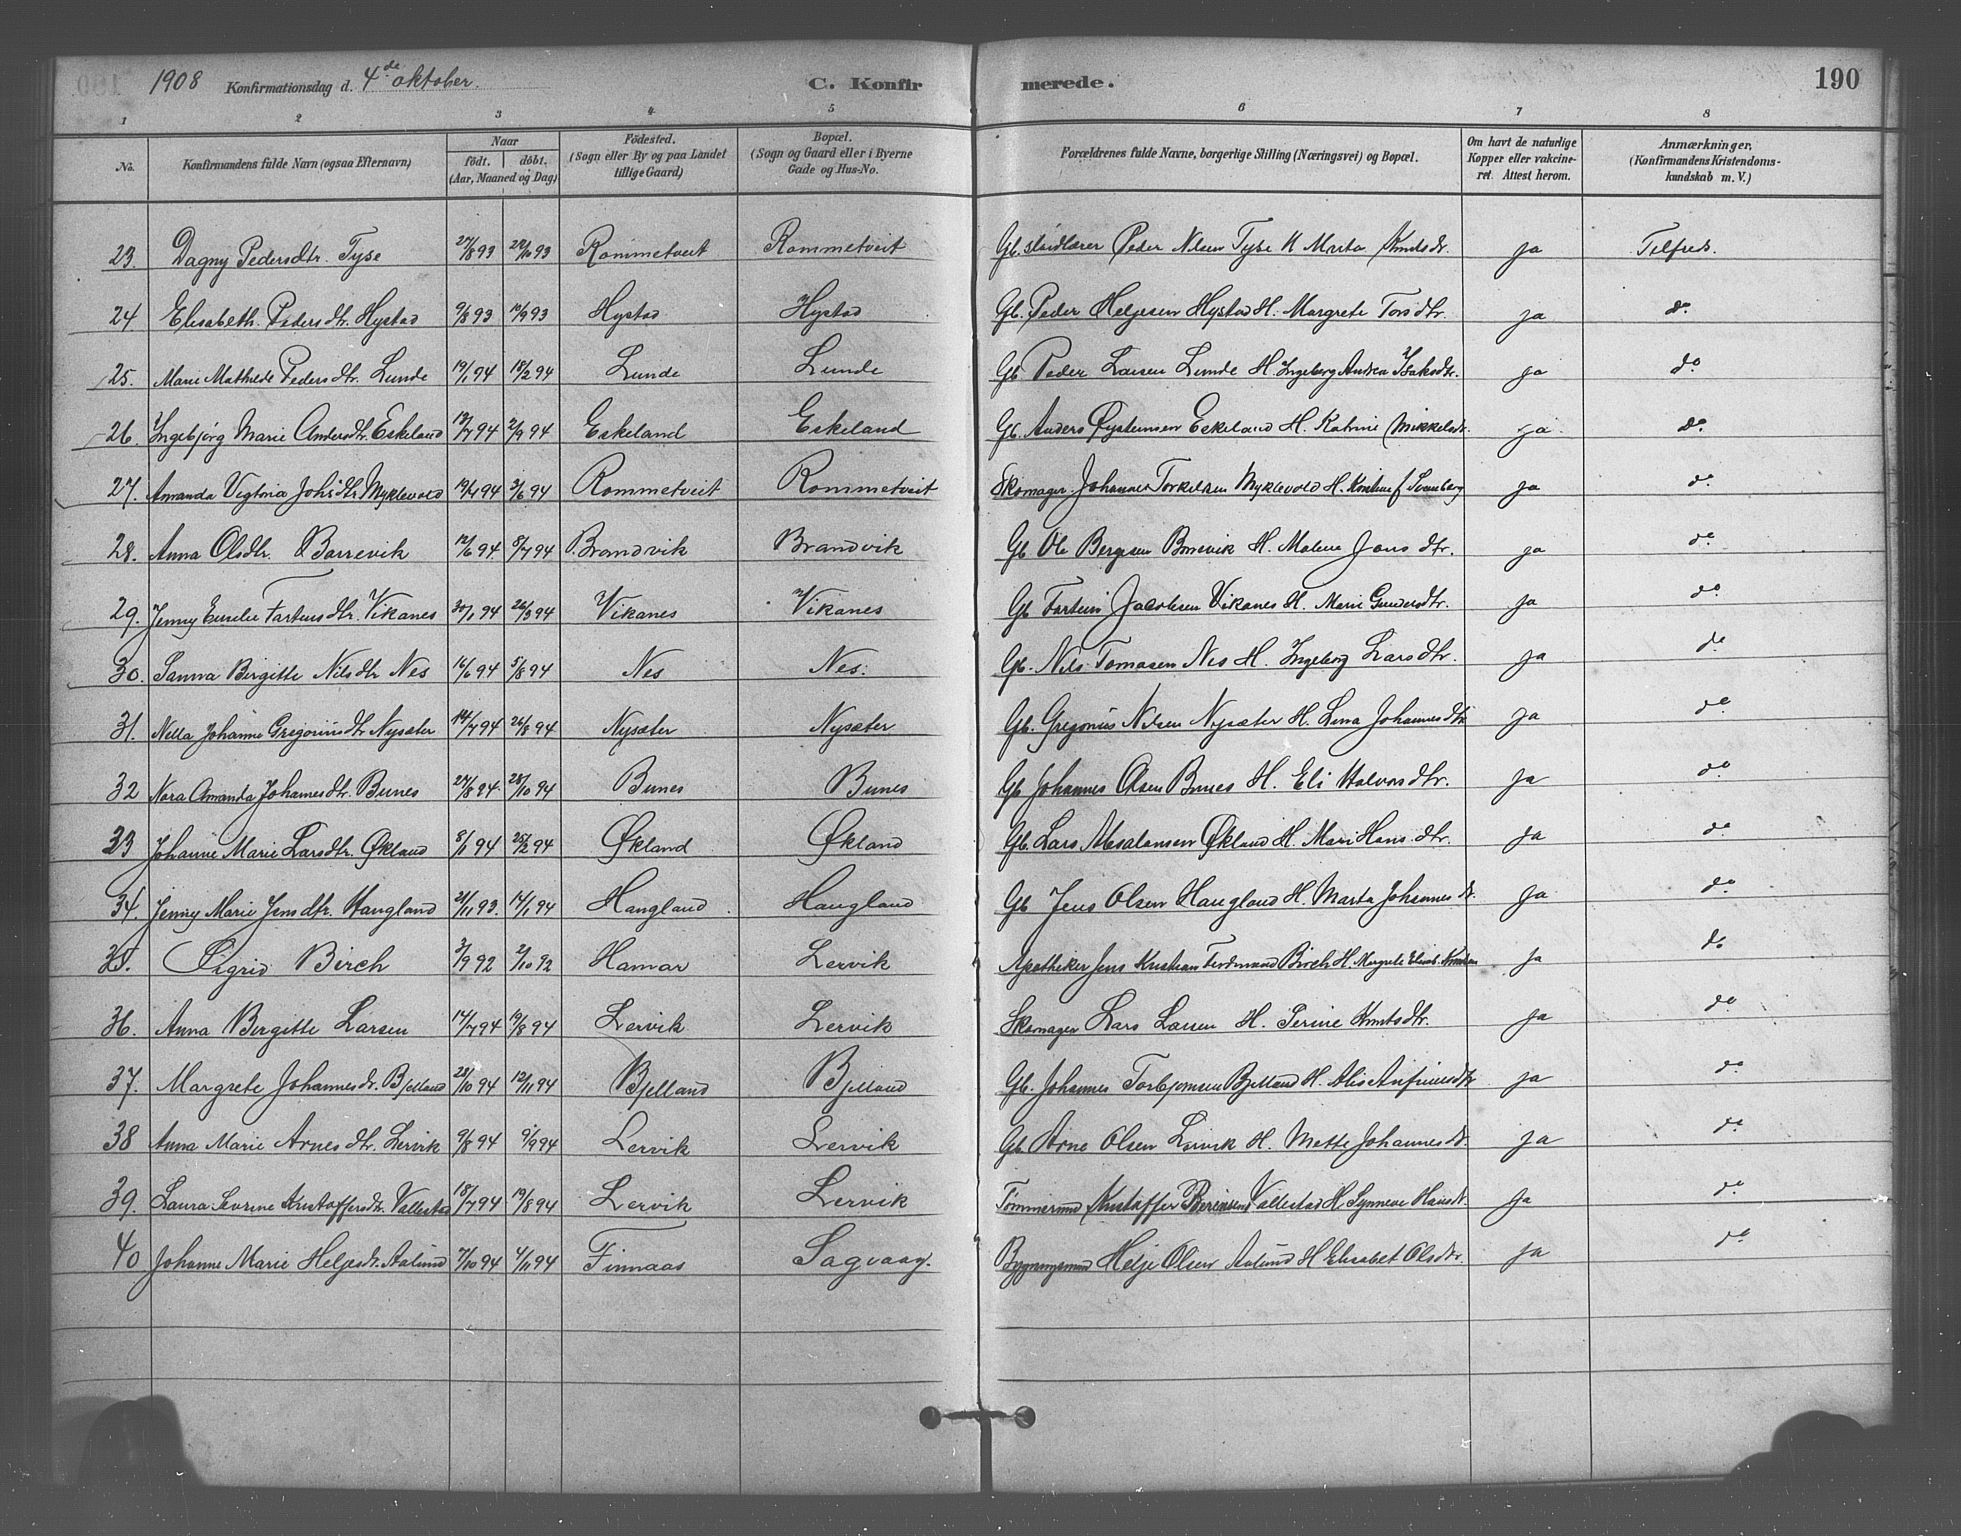 1908 Konfirmationsdag d. 4de oktober. C. Konfirmerede. 190
1 2 3 4 5 6 7 8
No. Konfirmandens fulde Navn (ogsaa Efternavn) Naar født. døbt. (Aar, Maaned og Dag) Fødested. (Sogn eller By og paa Landet tillige Gaard) Bopæl. (Sogn og Gaard eller i Byerne Gade og Hus-No. Forældrenes fulde Navne, borgerlige Stilling (Næringsvei) og Bopæl. Om havt de naturlige Kopper eller vakcineret. Attest herom. Anmærkninger. (Konfirmandens Kristendomskundskab m. V.)
23. Dagny Pedersdtr. Tyse 27/8 93 22/10 93 Rommetveit Rommetveit Gb. Peder Nilsen Tyse H Marta Knutsdtr. ja Tilfreds.
24 Elisabeth Pedersdtr. Hystad 9/8 93 17/9 93 Hystad Hystad Gb. Peder Heljesen Hystad H. Margrete Torsdtr. ja do
25. Marie Mathilde Pedersdtr. Lunde 19/1 94 18/2 94 Lunde Lunde Gb Peder Larsen Lunde H Ingeborg Andrea Isaksdtr. ja do
26. Ingebjørg Marie Andersdtr. Eskeland 13/7 94 2/9 94 Eskeland Eskeland Gb. Anders Øystensen Eskeland H. Mikkelsdtr. ja do
27. Amanda Vigtoria Johsdtr Myklevold 19/4 94 3/6 94 Rommetveit Rommetveit Skomager Johannes Torkelsen Myklevold H. f Svenberg ja do
28. Anna Olsdtr. Barrevik 12/6 94. 8/7 94 Brandvik Brandvik Gb Ole Bergesen H. Malene Jansdtr. ja do
29. Jenny Emelie Farteinsdtr. Vikanes 30/1 94 26/3 94 Vikanes Vikanes Gb Fartein Jacobsen Vikanes H. Mari Gundersdtr. ja do
30. Sanna Birgitte Nilsdtr Nes 16/6 94 5/8 94 Nes Nes. Gb. Nils Tomasen Nes H. Ingeborg Larsdtr. ja do
31. Nella Johanne Gregoriusdtr Nysæter 14/7 94 26/8 94 Nysæter Nysæter Gb. Gregorius Nilsen Nysæter H. Lena Johannesdtr ja do
32 Nora Amanda Johannesdtr. Bunes 27/8 94. 28/10 94 Bunes Bunes Gb Johannes Olsen Bunes H. Eli Halvorsdtr. ja do
33 Johanne Marie Larsdtr. Økland 8/1 94 25/2 94 Økland Økland Gb. Lars Absalonsen Økland H. Mari Hansdtr. ja do
34. Jenny Marie Jensdtr. Haugland 21/11 93. 14/1 94 Haugland Haugland Gb Jens Olsen Haugland H. Marta Johannesdt. ja do
35. Sigrid Birch 3/9 92 2/10 92 Hamar Lervik Apotheker Jens Kristian Ferdinand Birch H. Margrete ja do
36. Anna Bergitte Larsen 14/7 94 19/8 94 Lervik Lervik Skomager Lars Larsen H. Serine Knutsdtr. ja do
37. Margrete Johannesdt. Bjelland 28/10 94 12/11 94 Bjelland Bjelland Gb. Johannes Torbjørnsen Bjelland H. Alis Anfinnsdtr ja do
38 Anna Marie Arnesdtr. Lervik 9/8 94 9/9 94 Lervik Lervik Gb Arne Olsen Lervik H. Mette Johannesdt. ja do
39. Laura Severine Kristoffersdtr. Vallestad 18/7 94 19/8 94 Lervik Lervik Tømmermd Kristoffer Vallestad H. Synneve Hansdt. ja do
40 Johanne Marie Heljesdt. Aalund 7/10 94 4/11 94 Finnaas Sagvaag. Helje Olsen Aalund H Elisabet Olsdtr. ja do